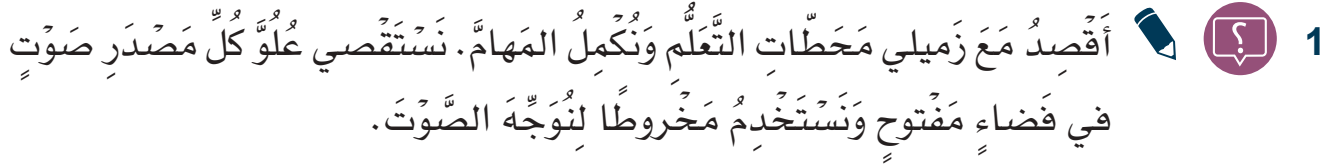 1 ؟ أَقْصِدُ مَعَ زَميلي مَحَطّاتِ التَّعَلُّمِ وَنُكْمِلُ المَهامَّ. نَسْتَقْصي عُلُوَّ كُلِّ مَصْدَرِ صَوْتٍ
في فَضاءٍ مَفْتوحٍ وَنَسْتَخْدِمُ مَخْروطًا لِنُوَجِّهَ الصَّوْتَ.